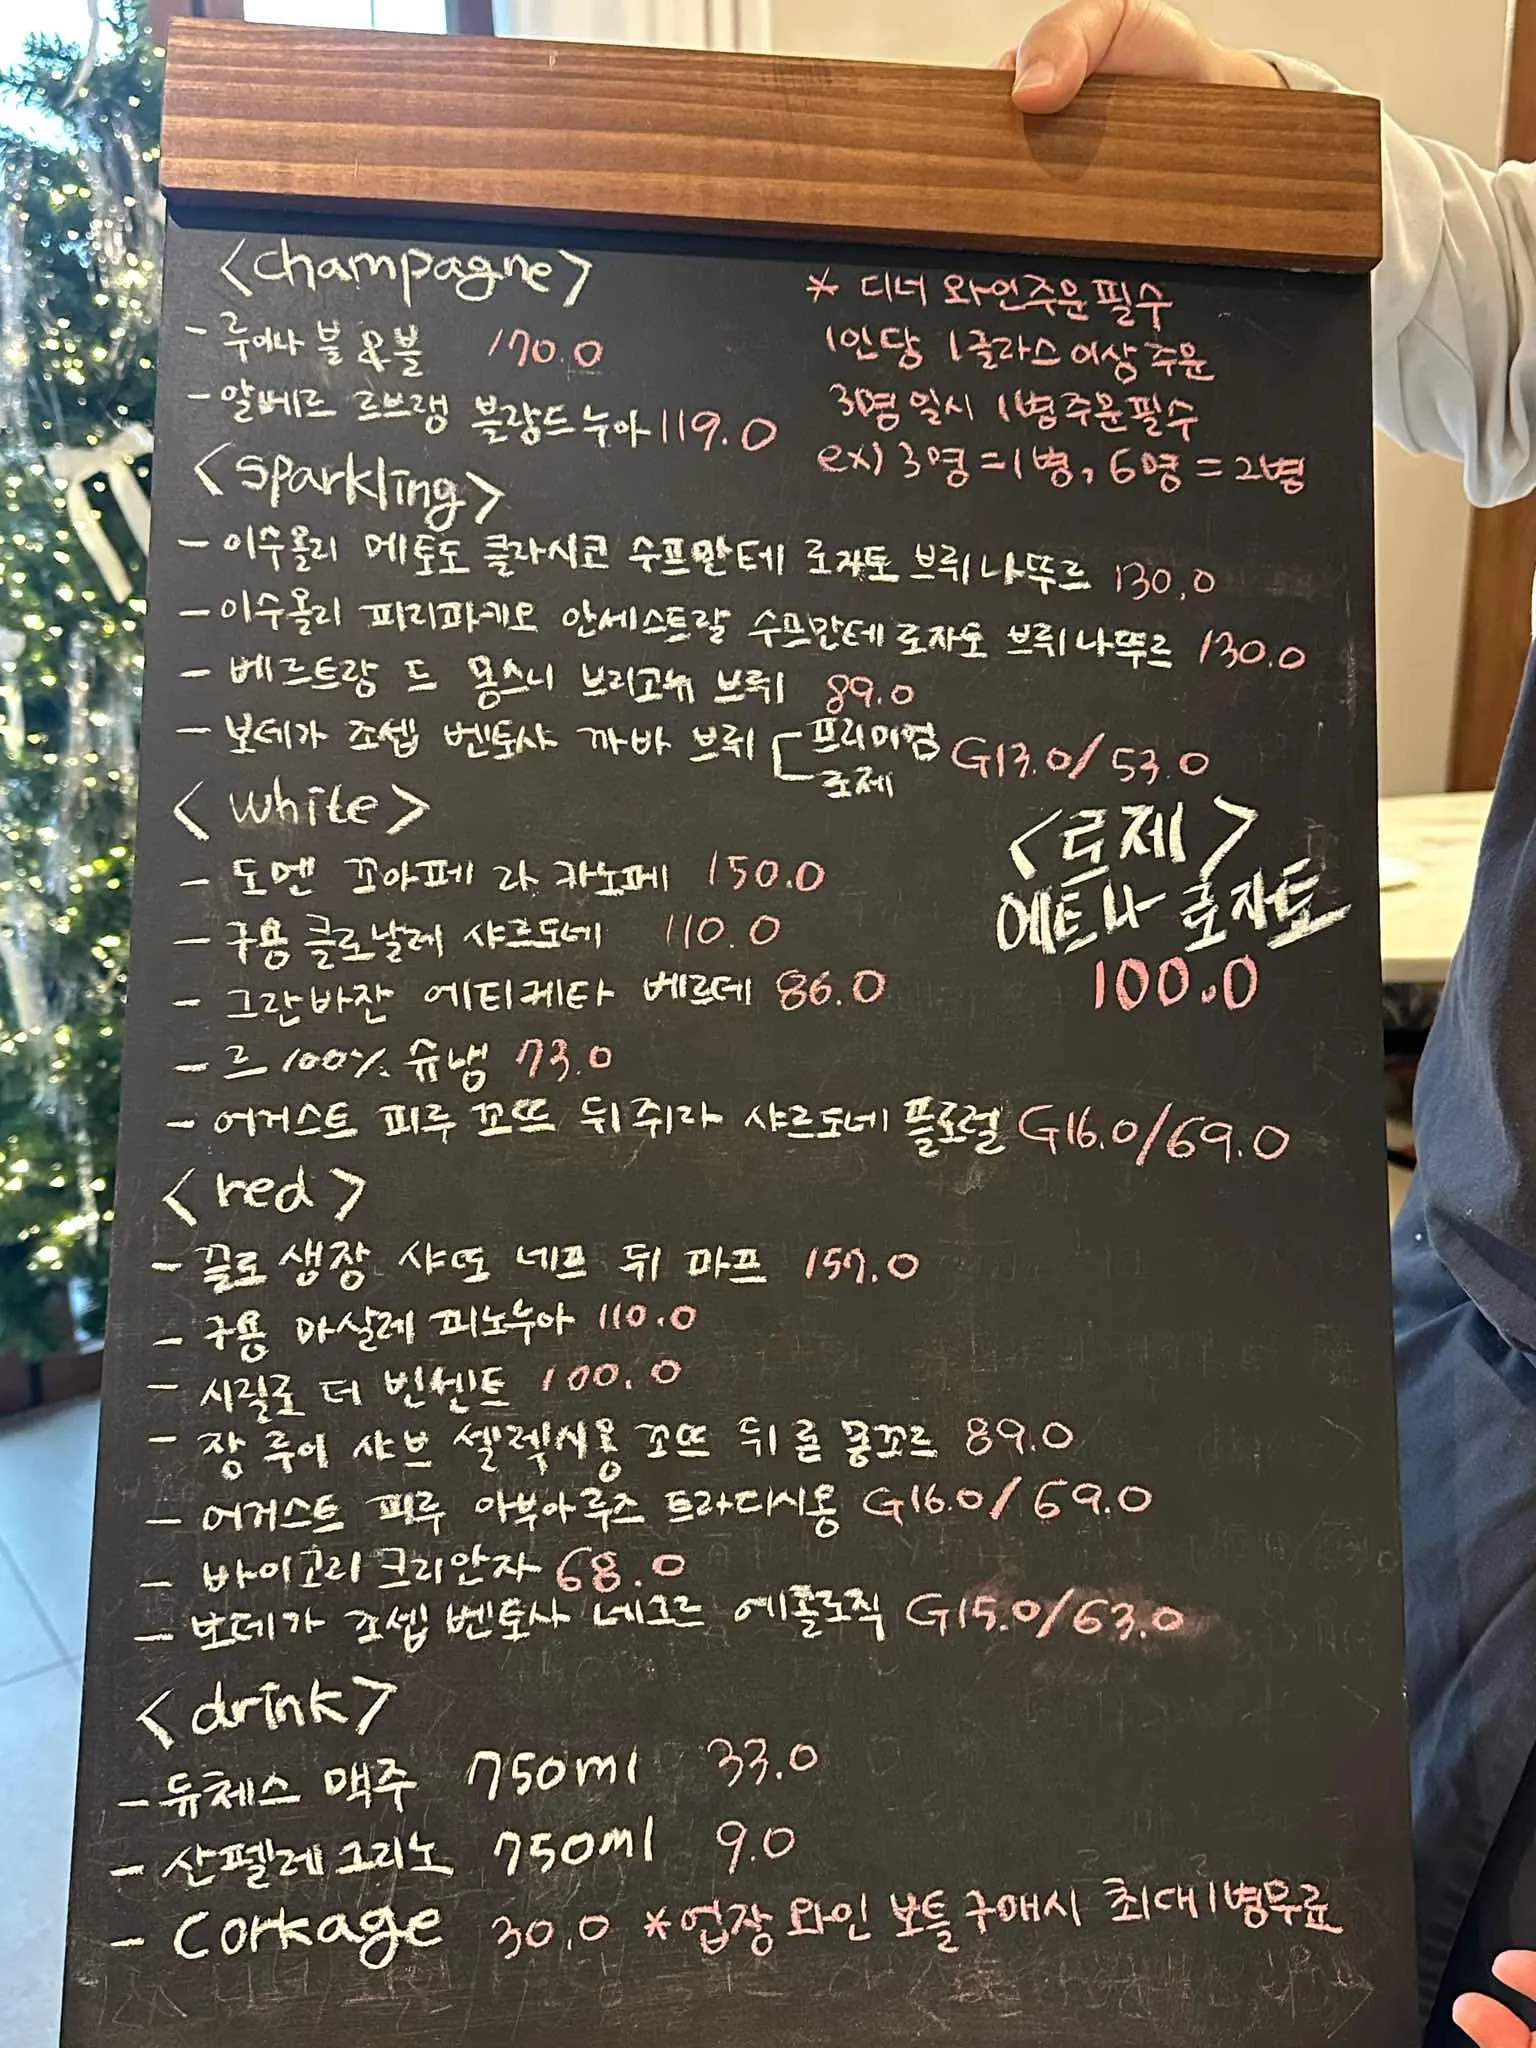 <champagne>
- 루이나 블&블 170.0
- 알베르 르브랭 블랑드누아 119.0
* 디너 와인주문필수
1인당 1글라스이상주문
3명일시 1병주문필수
ex) 3명=1병, 6명=2병
<sparkling>
- 이수올리 메토도 클라시코 수프만테 로자토 브뤼나뚜르 130.0
- 이수올리 피리파케오 안세스트랄 수프만테 로자토 브뤼나뚜르 130.0
- 베르트랑 드 몽스니 브리고뉴 브뤼 89.0
- 보데가 조셉 벤토샤 까바 브뤼 [프리미엄 G13.0/53.0
로제
<white>
- 도멘 꼬아페 라 카노페 150.0
- 구용 클로날레 샤르도네 110.0
- 그란바잔 에티케타 베르데 86.0
- 르 100% 슈냉 73.0
- 어거스트 피루 꼬뜨 뒤 쥐라 샤르도네 플로럴 G16.0/69.0
<로제>
에트나 로자토
100.0
<red>
- 끌로 생장 샤또 네프 뒤 파프 157.0
- 구용 마살레 피노누아 110.0
- 시릴로 더 빈센트 100.0
- 장 루이 샤브 셀렉시옹 꼬뜨 뒤 론 몽꼬르 89.0
- 어거스트 피루 아부아루즈 트라디시옹 G16.0/69.0
- 바이고리 크리안자 68.0
- 보데가 조셉 벤토사 네그르 에콜로직 G15.0/63.0
<drink>
- 듀체스 맥주 750ml 33.0
- 산펠레그리노 750ml 9.0
- Corkage 30.0 *업장 와인 보틀 구매시 최대1병무료